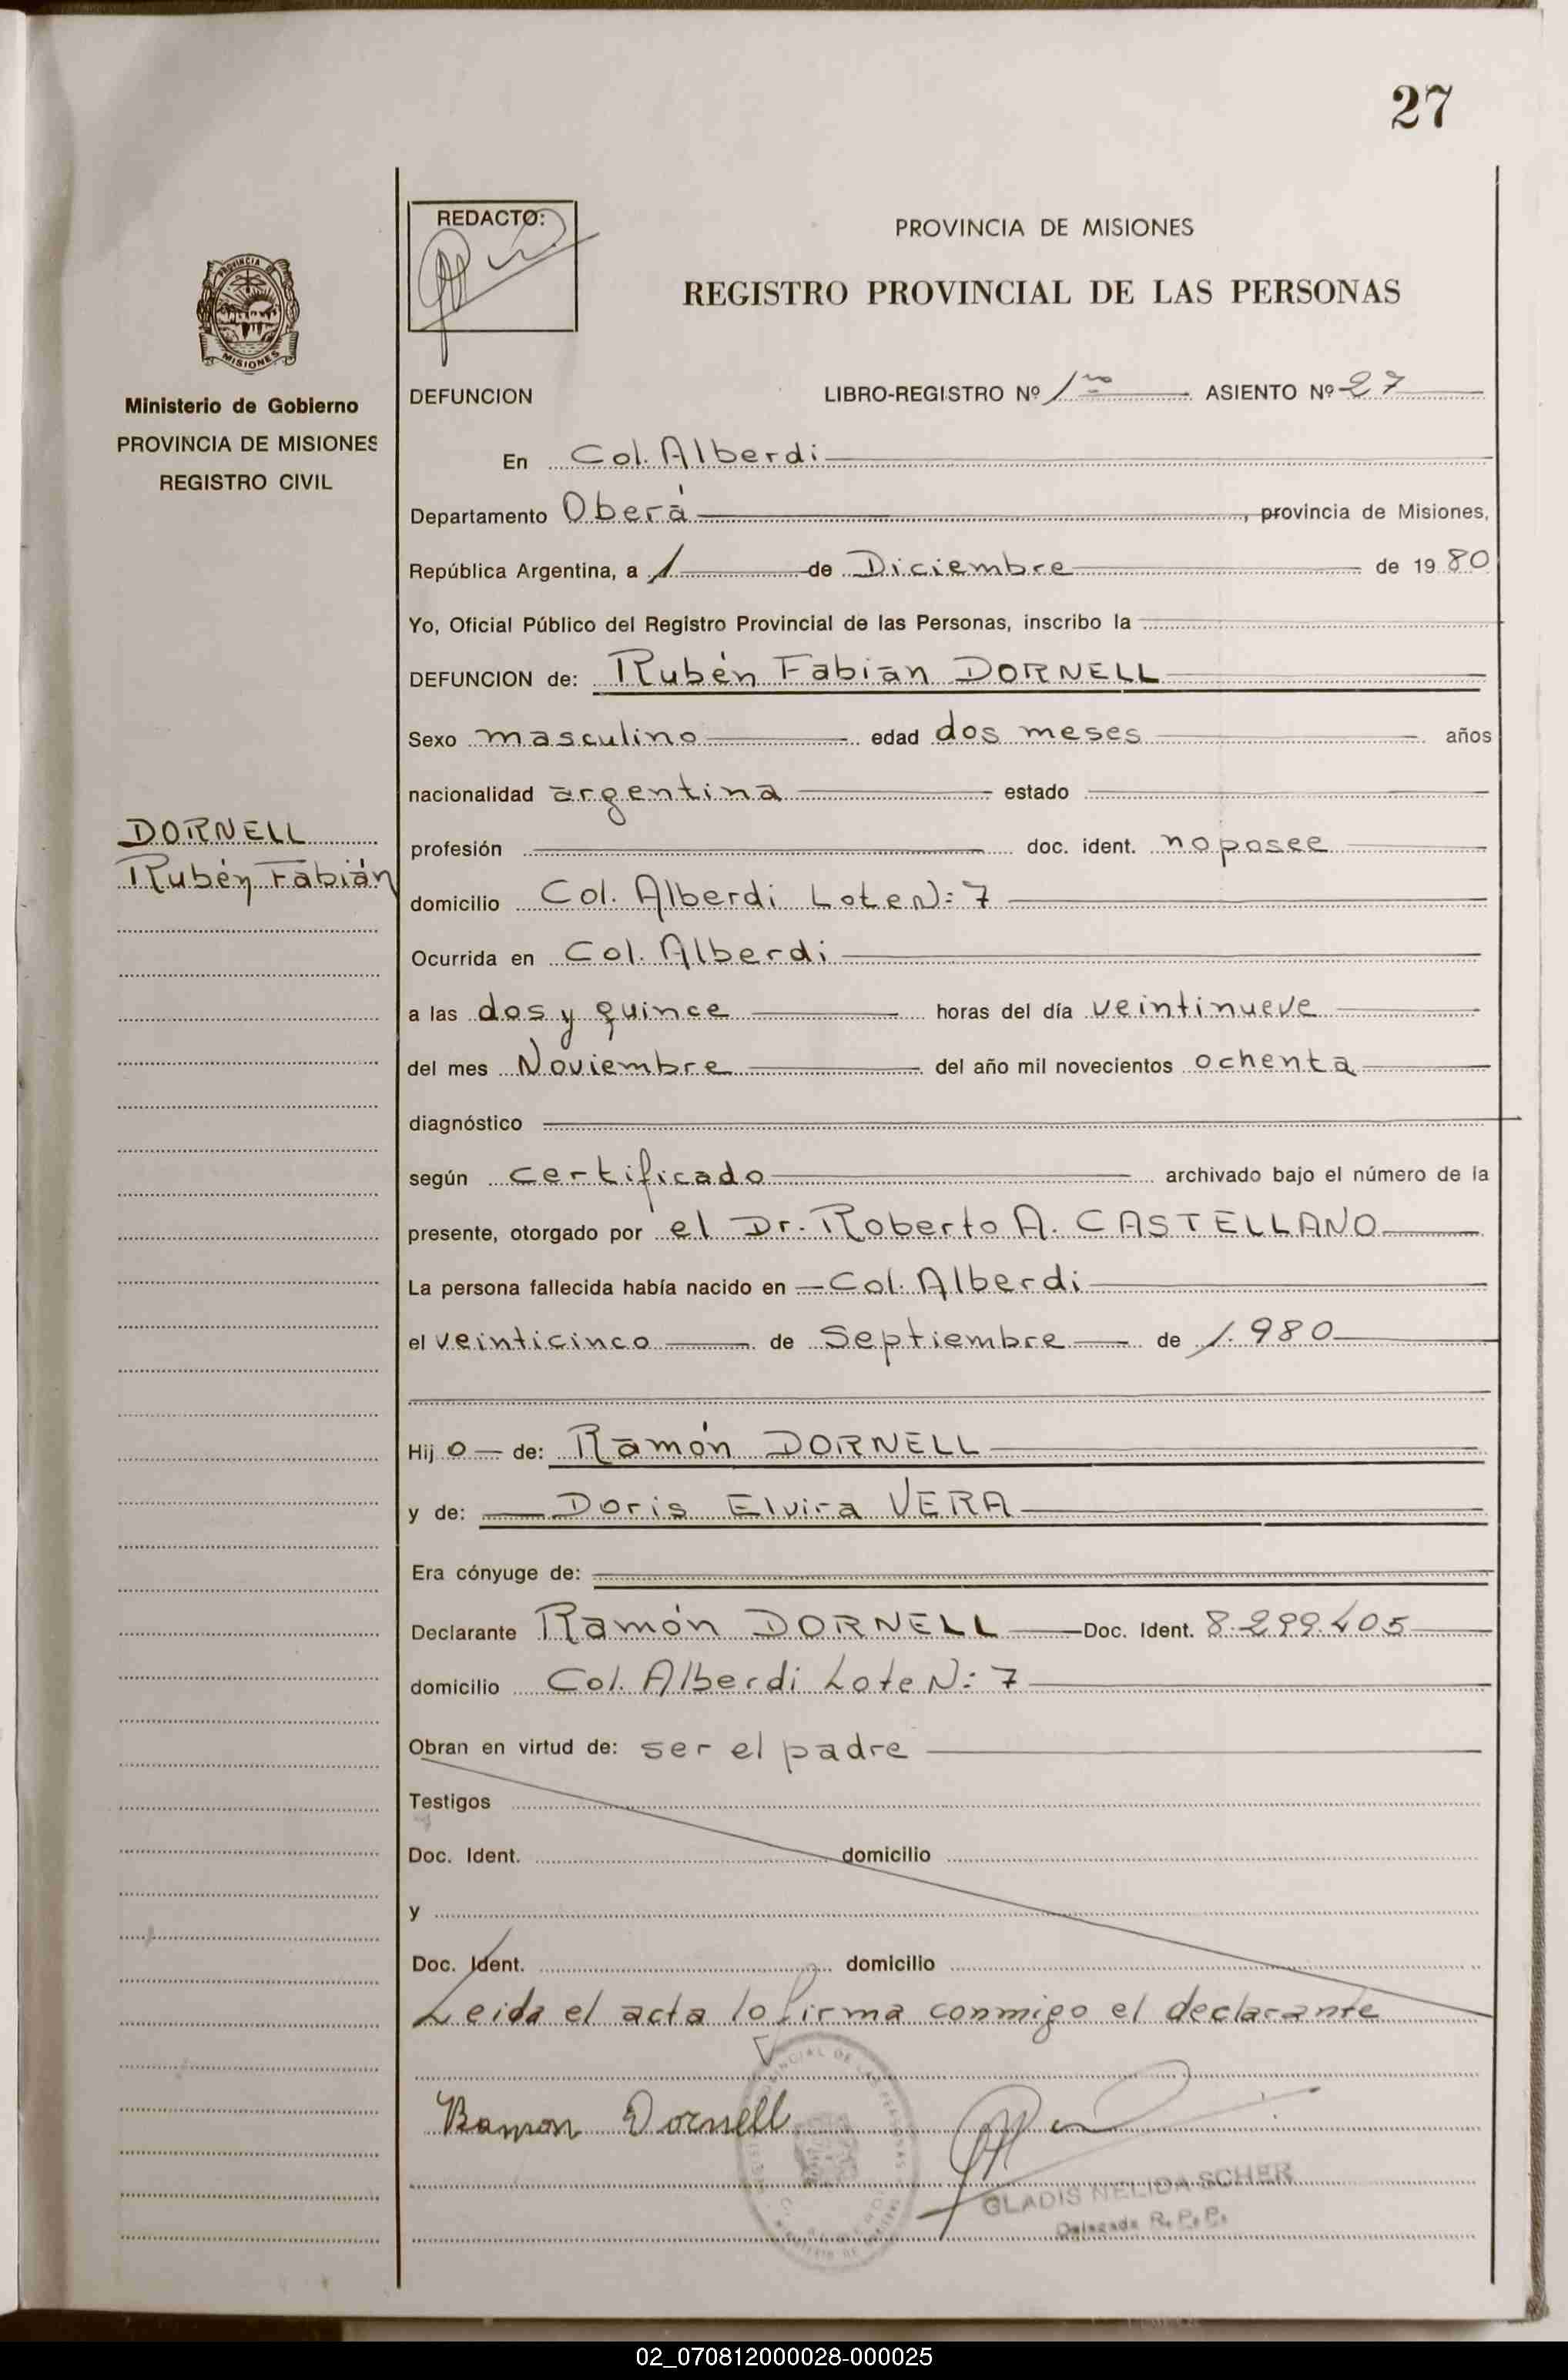 27
REDACTO:
PROVINCIA DE MISIONES
REGISTRO PROVINCIAL DE LAS PERSONAS
PROVINCIA DE
MISIONES
Ministerio de Gobierno
PROVINCIA DE MISIONES
REGISTRO CIVIL
DORNELL
Rubén Fabián
DEFUNCION LIBRO-REGISTRO Nº 1ro ASIENTO Nº 27
En Col. Alberdi
Departamento Oberá, provincia de Misiones,
República Argentina, a 1 de Diciembre de 1980
Yo, Oficial Público del Registro Provincial de las Personas, inscribo la
DEFUNCION de: Rubén Fabian DORNELL
Sexo masculino edad dos meses años
nacionalidad argentina estado
profesión doc. ident. no posee
domicilio Col. Alberdi Lote N: 7
Ocurrida en Col. Alberdi
a las dos y quince horas del día veintinueve
del mes Noviembre del año mil novecientos ochenta
diagnóstico
según certificado archivado bajo el número de la
presente, otorgado por el Dr. Roberto A. CASTELLANO
La persona fallecida había nacido en Col. Alberdi
el veinticinco de Septiembre de 1.980
Hijo de: Ramón DORNELL
y de: Doris Elvira VERA
Era cónyuge de:
Declarante Ramón DORNELL Doc. Ident. 8.299.405
domicilio Col. Alberdi Lote N: 7
Obran en virtud de: ser el padre
Testigos
Doc. Ident. domicilio
y
Doc. Ident. domicilio
Leida el acta lo firma conmigo el declarante
Ramon Dornell
GLADIS NELIDA SCHER
Delegada R. P. P.
02_070812000028-000025